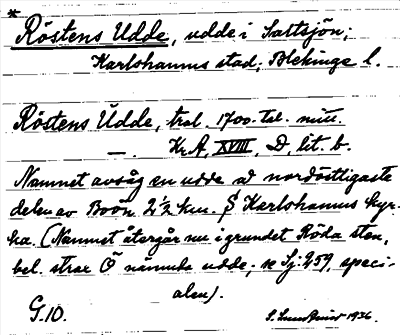 *
Röstens Udde, udde i Saltsjön;
Karlshamns stad; Blekinge l.
Röstens Udde, trol. 1700-tal. mitt.
—. Kr. A, XVIII, D, lit. b.
Namnet avsåg en udde å nordöstligaste
delen av Boön 2½ km. S Karlshamns kyr-
ka. (Namnet återgår nu i grundet Röda sten,
bel. strax Ö nämnda udde; se Sj. 259, speci-
alen).
G.10. 1936.